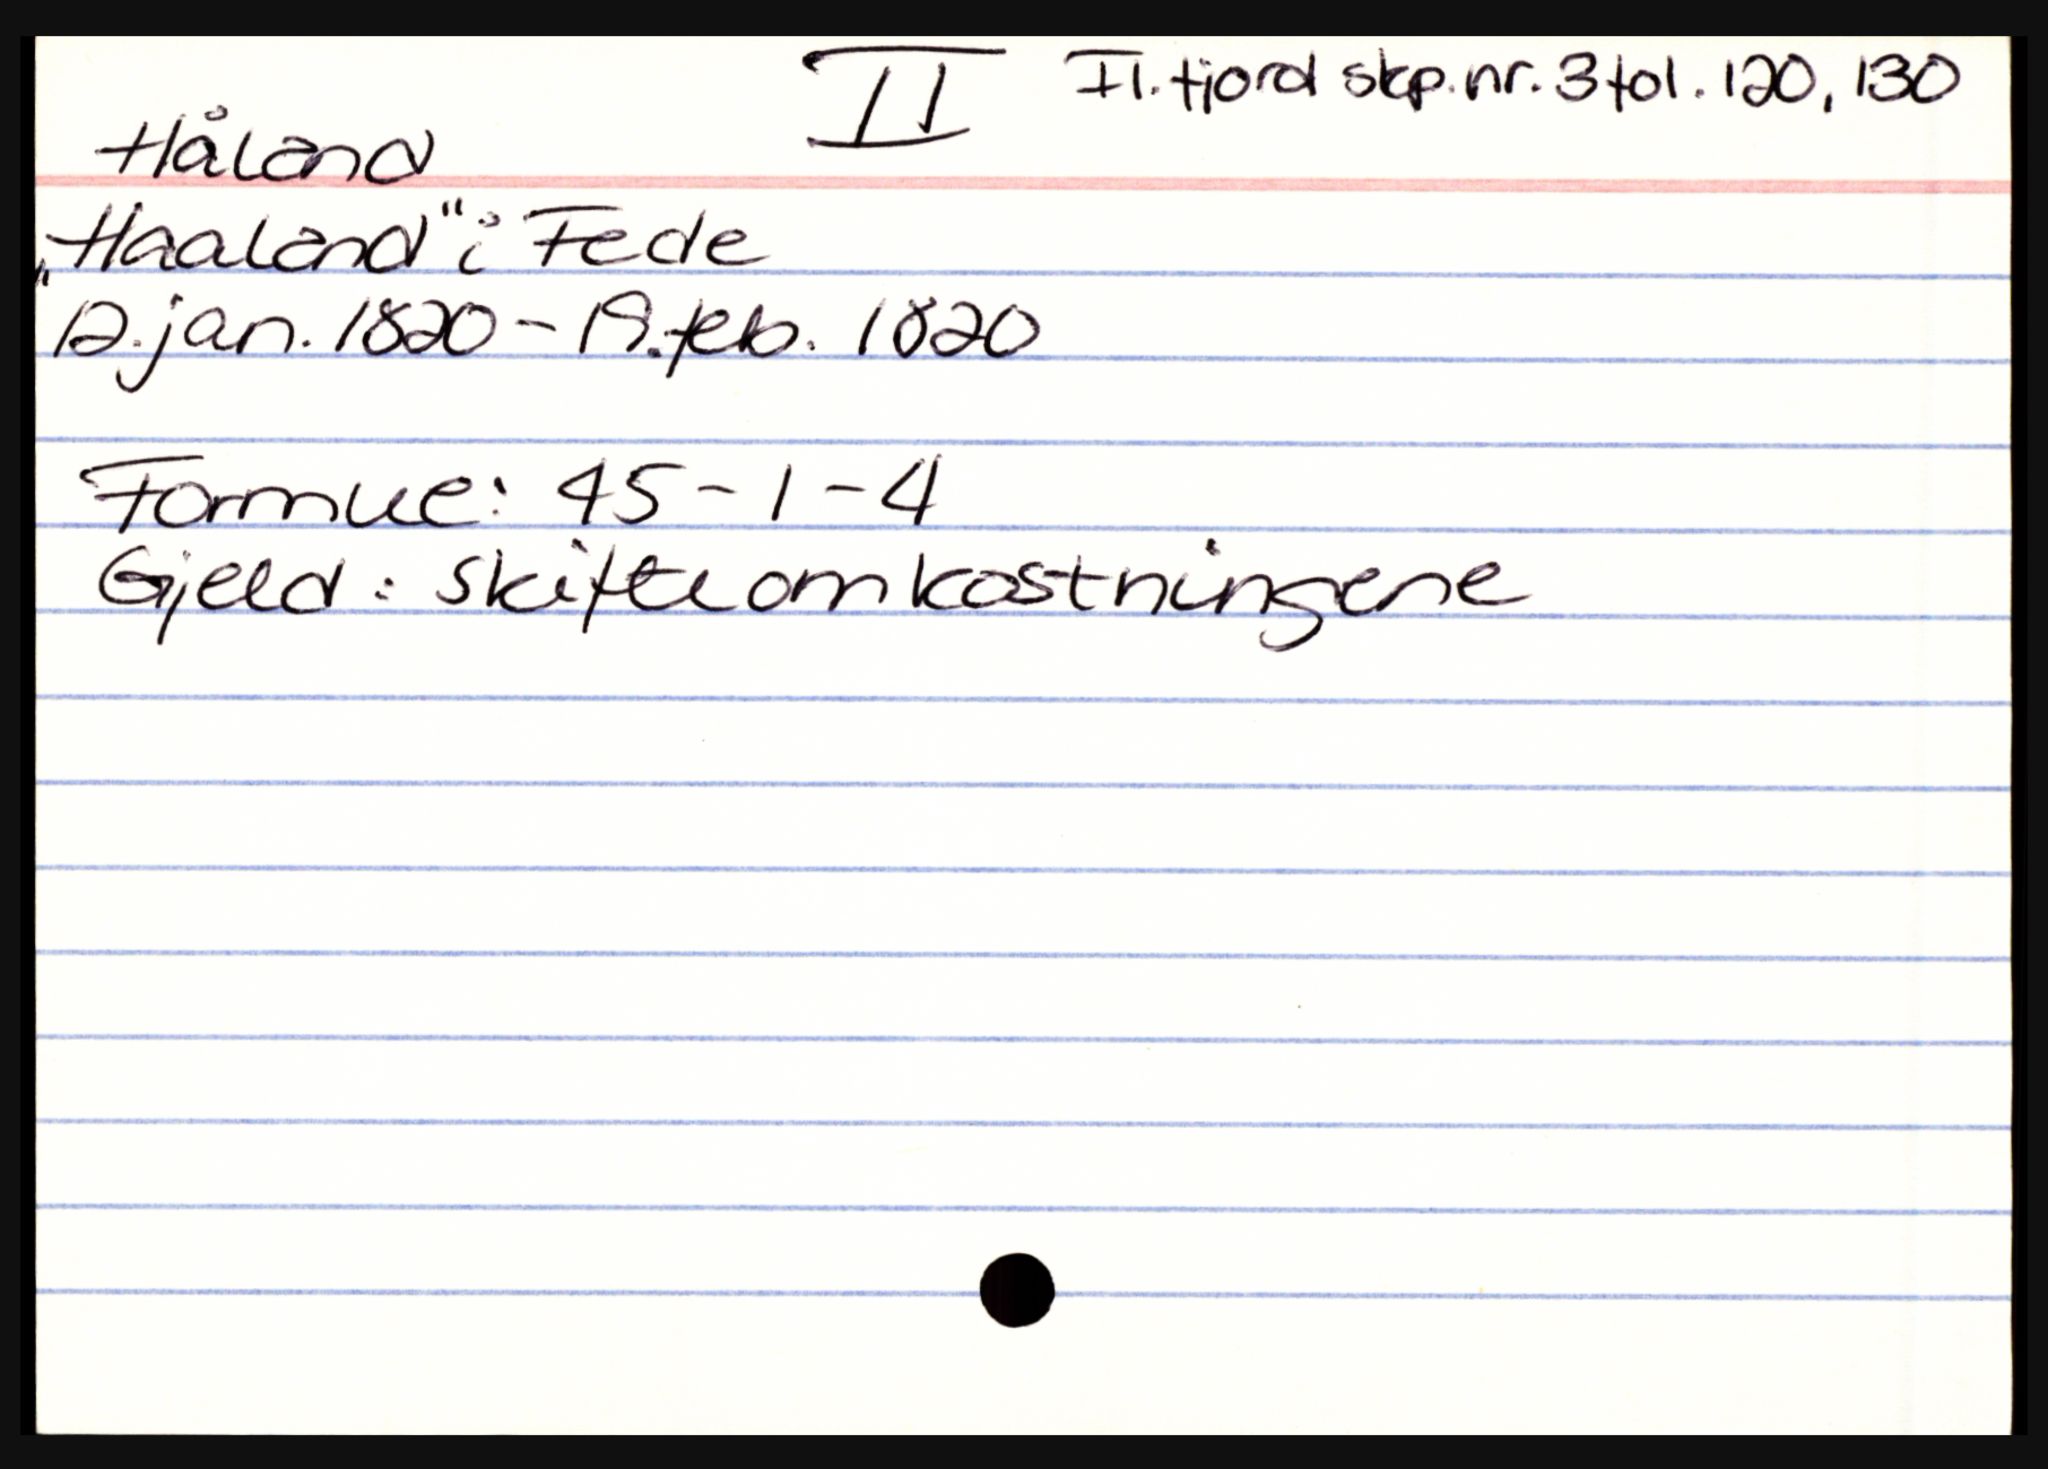 II Fl.fjord skp.nr. 3 fol. 120, 130
Håland
„Haaland“ i Fede
12. jan. 1820 - 19. feb. 1820
Formue: 45 - 1 - 4
Gjeld: skifteomkostningene